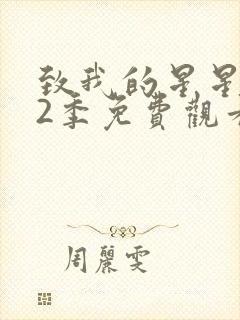 致我的星星
2季免費觀看
周麗雯